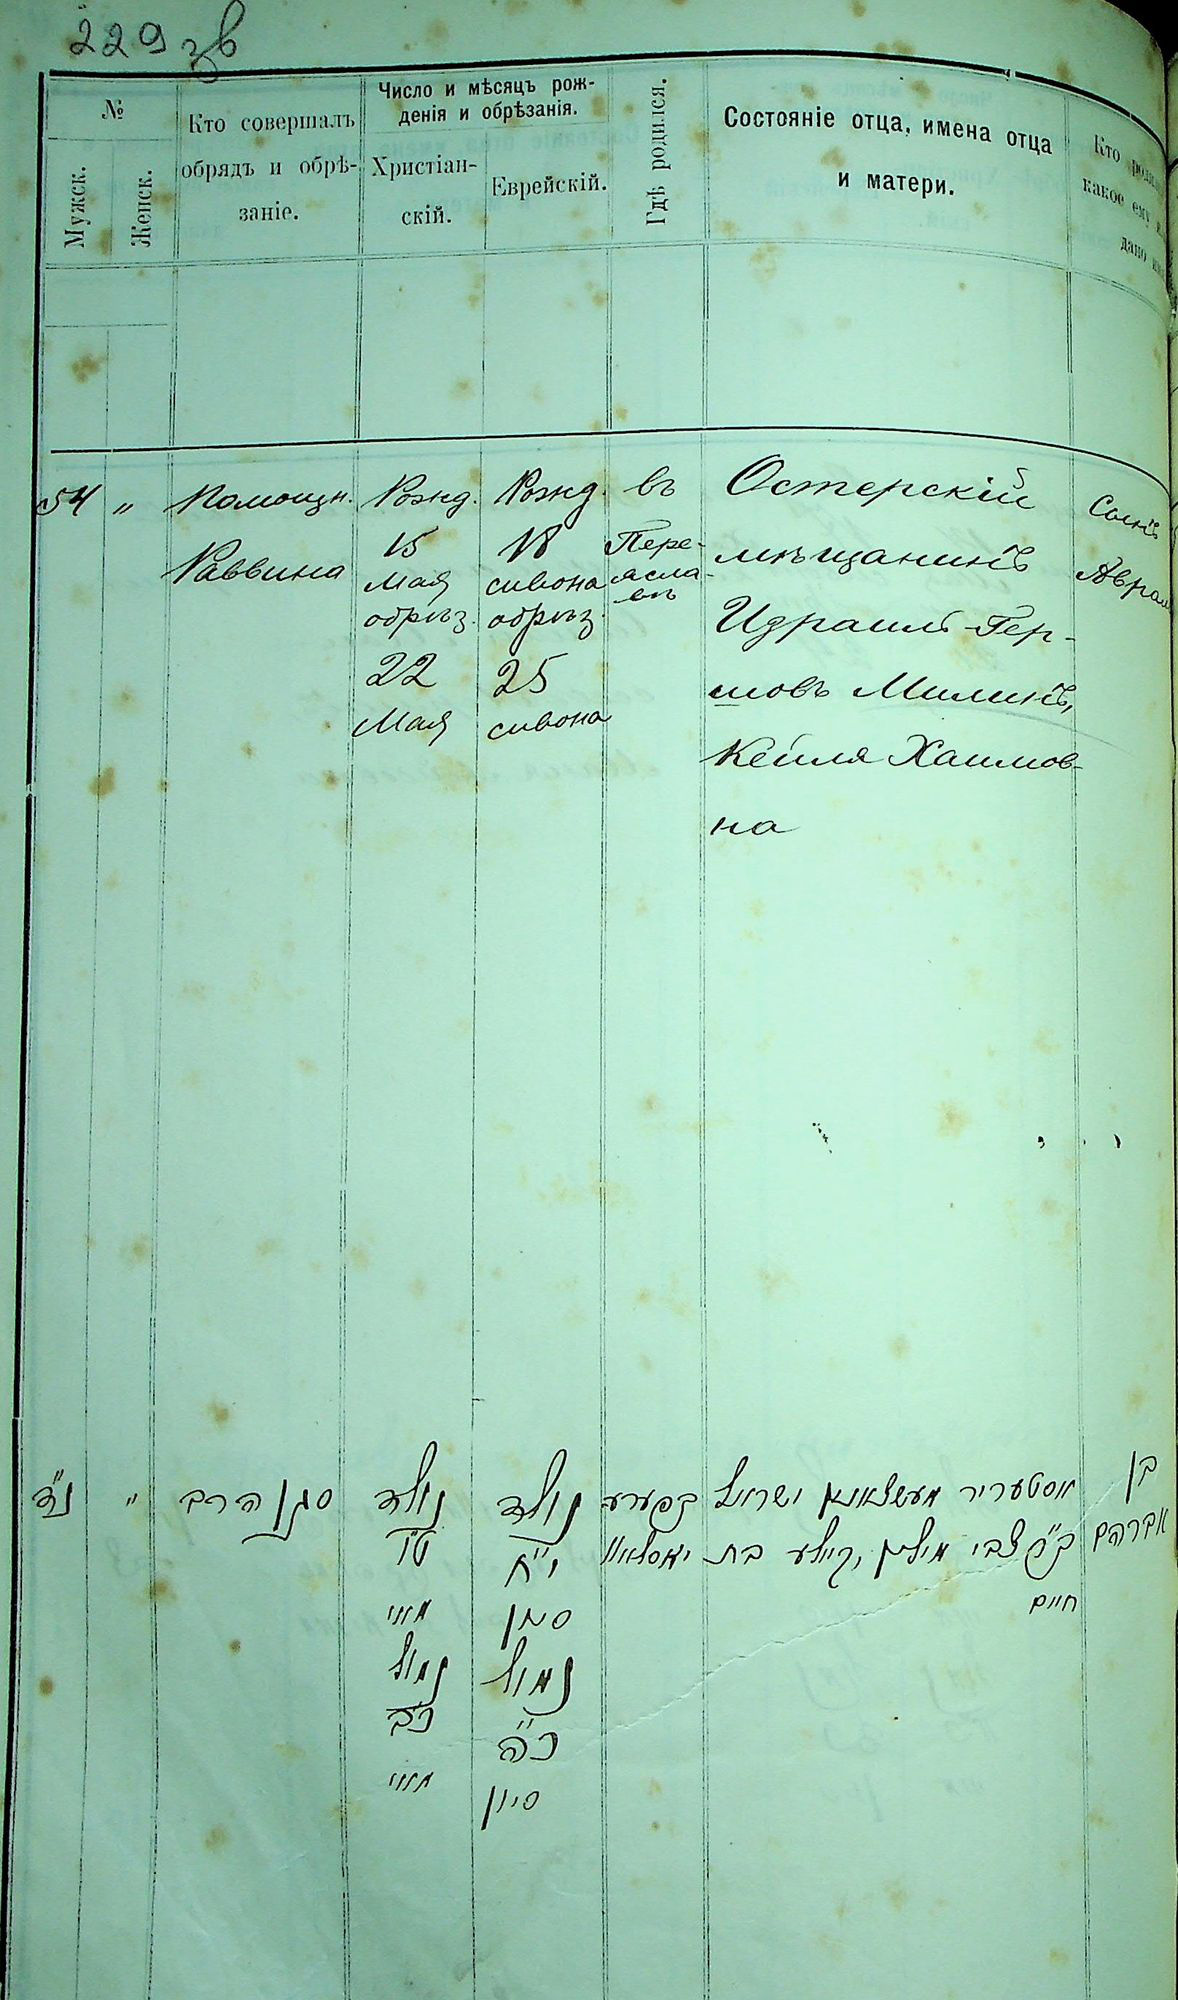 229 зв
№
Мужск.
Женск.
Кто совершалъ
обрядъ и обрѣ-
заніе.
Число и мѣсяцъ рож-
денія и обрѣзанія.
Христіан-
скій.
Еврейскій.
Гдѣ родился.
Состояніе отца, имена отца
и матери.
Кто
какое ему
дано
54
"
Помощн.
Раввина
Рожд.
15
мая
обрѣз.
22
мая
Рожд.
18
сивона
обрѣз.
25
сивона
въ
Пере-
ясла-
вѣ
Остерскій
мѣщанинъ
Израиль Гер-
шовъ Милинъ,
Кейля Хаимов-
на
Сынъ
נ"ד
"
סגן הרב
נולד
ט"ו
מאי
נמול
כ"ב
מאי
נולד
י"ח
סיון
נמול
כ"ה
סיון
בפערע
יאסלאוו
אסטעריר מעשצאנין ישראל
ב"ר צבי מילין, קיילע בת
חיים
בן
אברהם